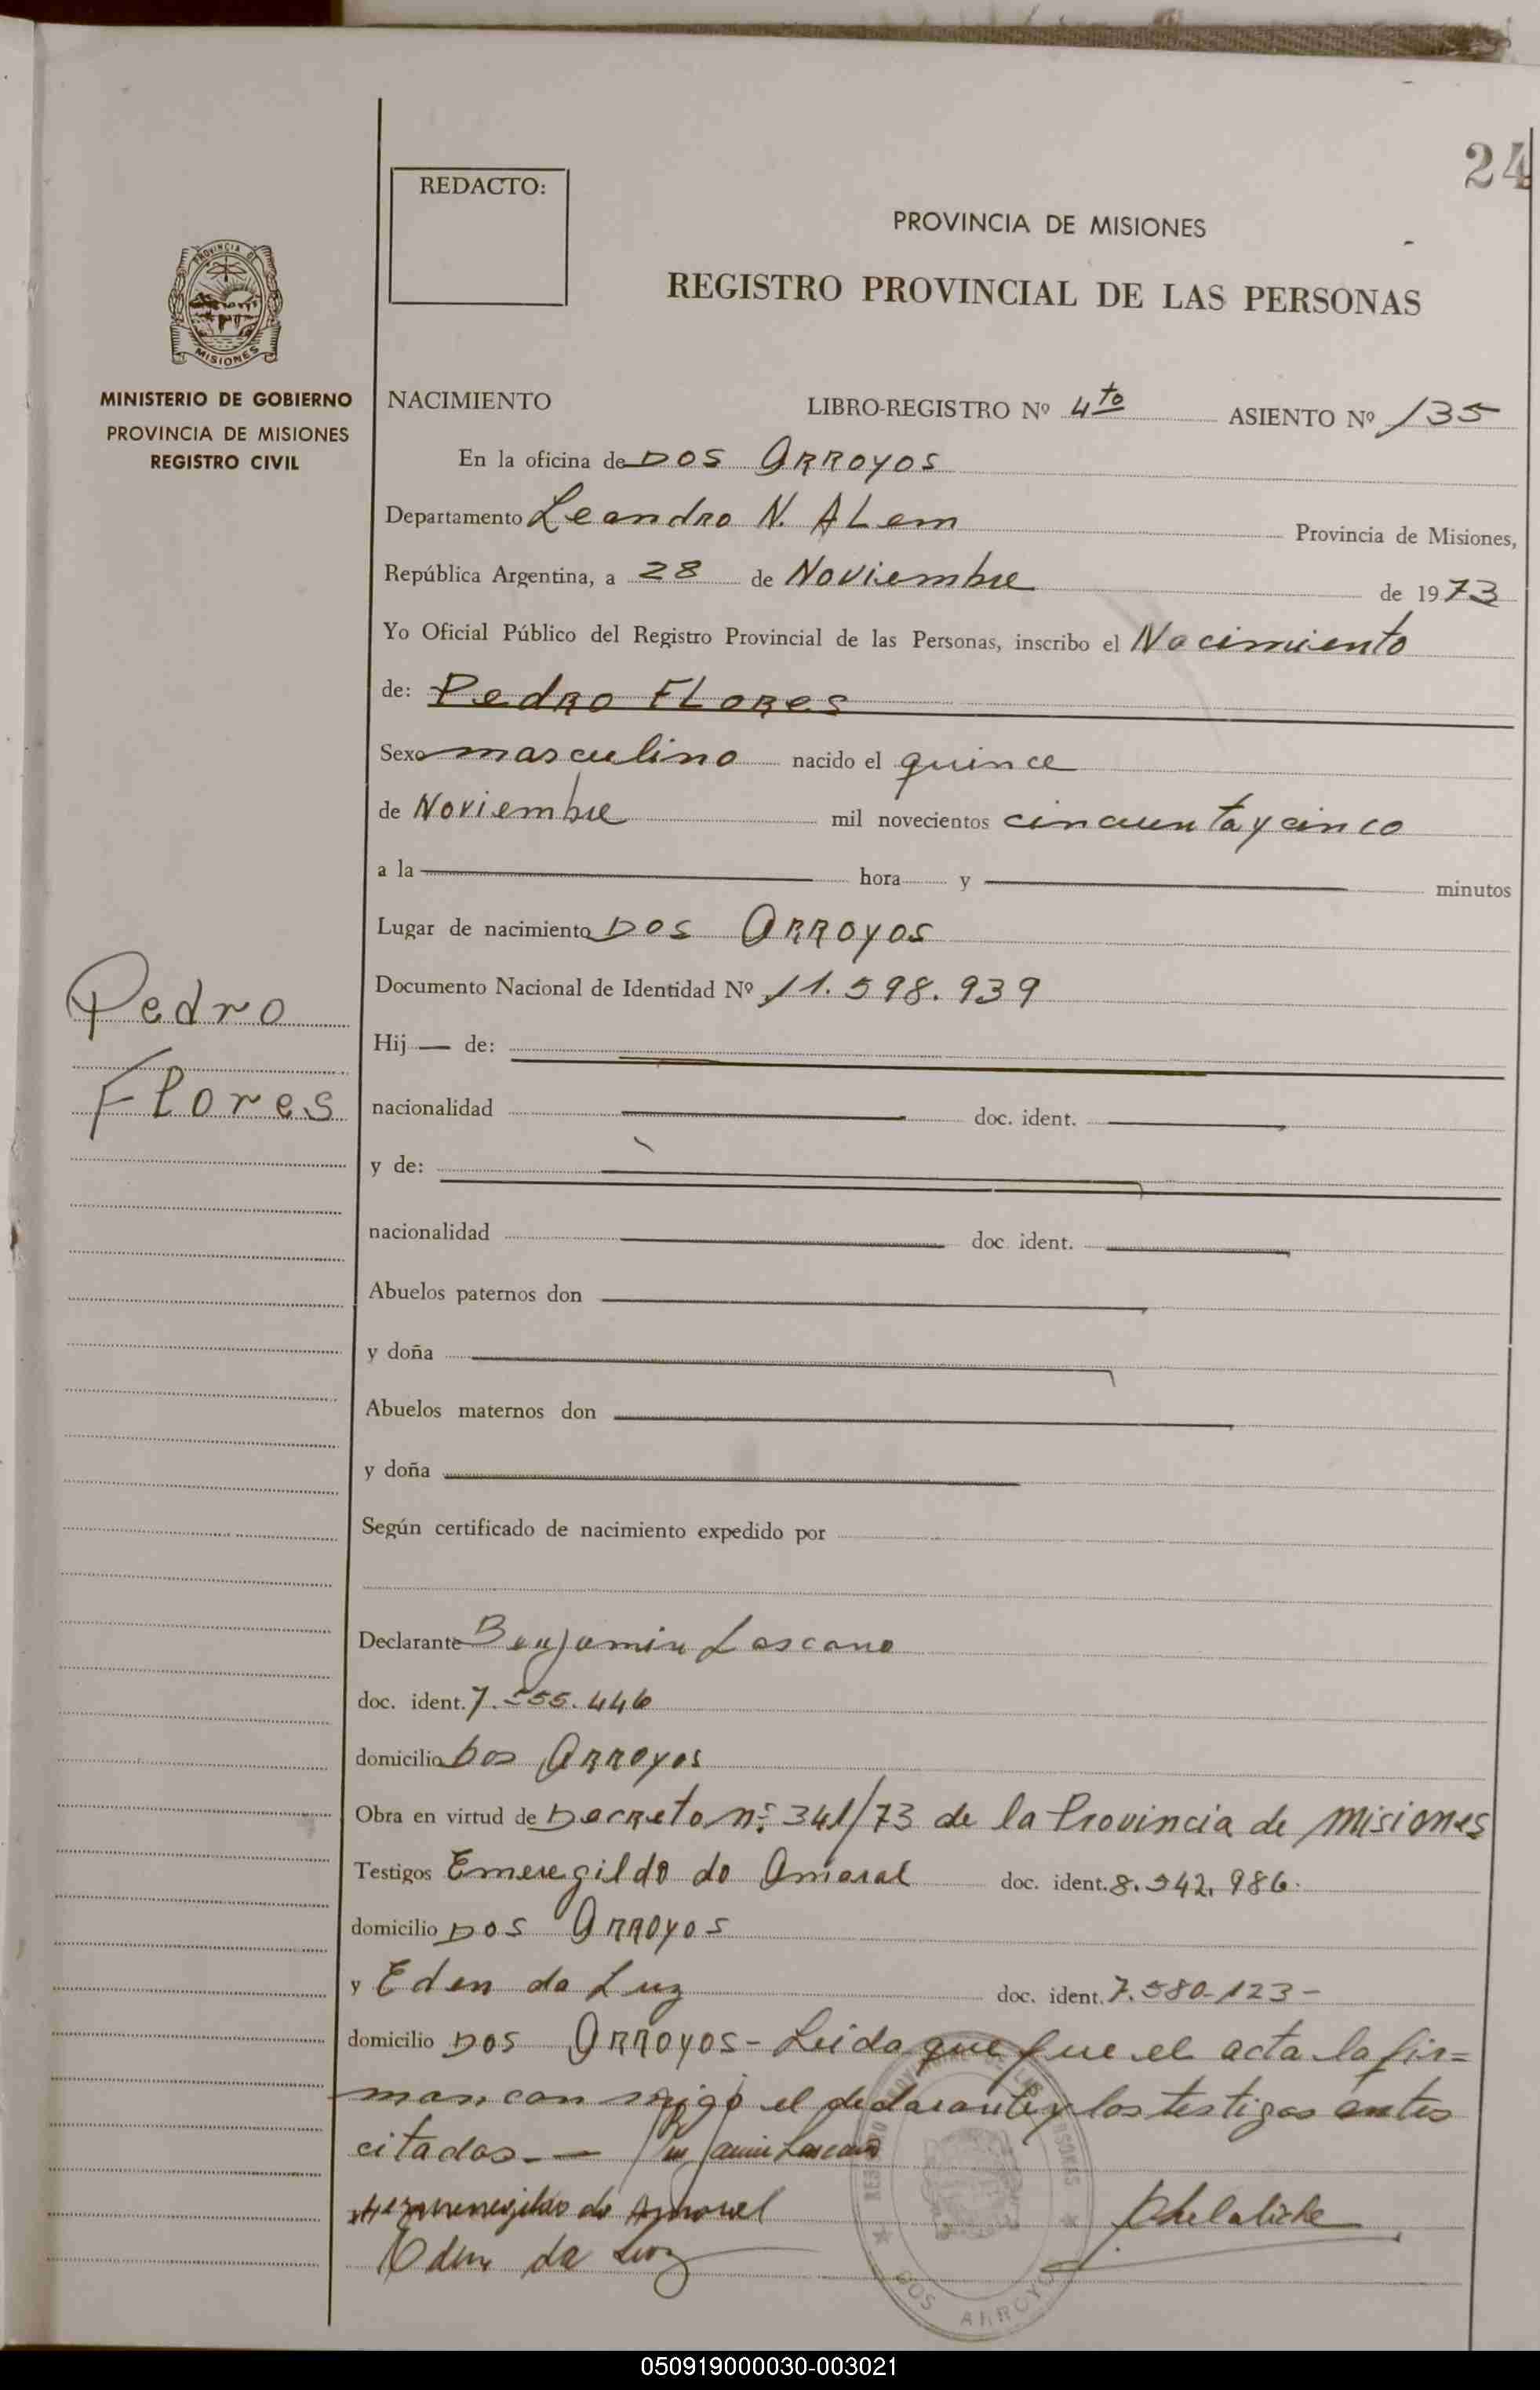 24
REDACTO:
PROVINCIA DE MISIONES
REGISTRO PROVINCIAL DE LAS PERSONAS
PROVINCIA DE
MISIONES
MINISTERIO DE GOBIERNO
PROVINCIA DE MISIONES
REGISTRO CIVIL
NACIMIENTO LIBRO-REGISTRO Nº 4to ASIENTO Nº 135
En la oficina de DOS ARROYOS
Departamento Leandro N. ALem Provincia de Misiones,
República Argentina, a 28 de Noviembre de 1973
Yo Oficial Público del Registro Provincial de las Personas, inscribo el Nacimiento
de: Pedro FLORes
Sexo masculino nacido el quince
de Noviembre mil novecientos cincuenta y cinco
a la hora y minutos
Lugar de nacimiento Dos ARROYOS
Documento Nacional de Identidad Nº 11.598.939
Pedro
Flores
Hij — de:
nacionalidad doc. ident.
y de:
nacionalidad doc. ident.
Abuelos paternos don
y doña
Abuelos maternos don
y doña
Según certificado de nacimiento expedido por
Declarante Benjamin Lascano
doc. ident. 7.555.446
domicilio Dos ARROYOS
Obra en virtud de Decreto nº: 341/73 de la Provincia de Misiones
Testigos Emeregildo do Amaral doc. ident. 8.542.986.
domicilio DOS ARROYOS
y Eden da Luz doc. ident. 7.580.123-
domicilio DOS ARROYOS - Leida que fue el acta la fir=
man conmigo el declarante y los testigos antes
citados.—
do Amaral
da Luz
DOS ARROYOS
050919000030-003021